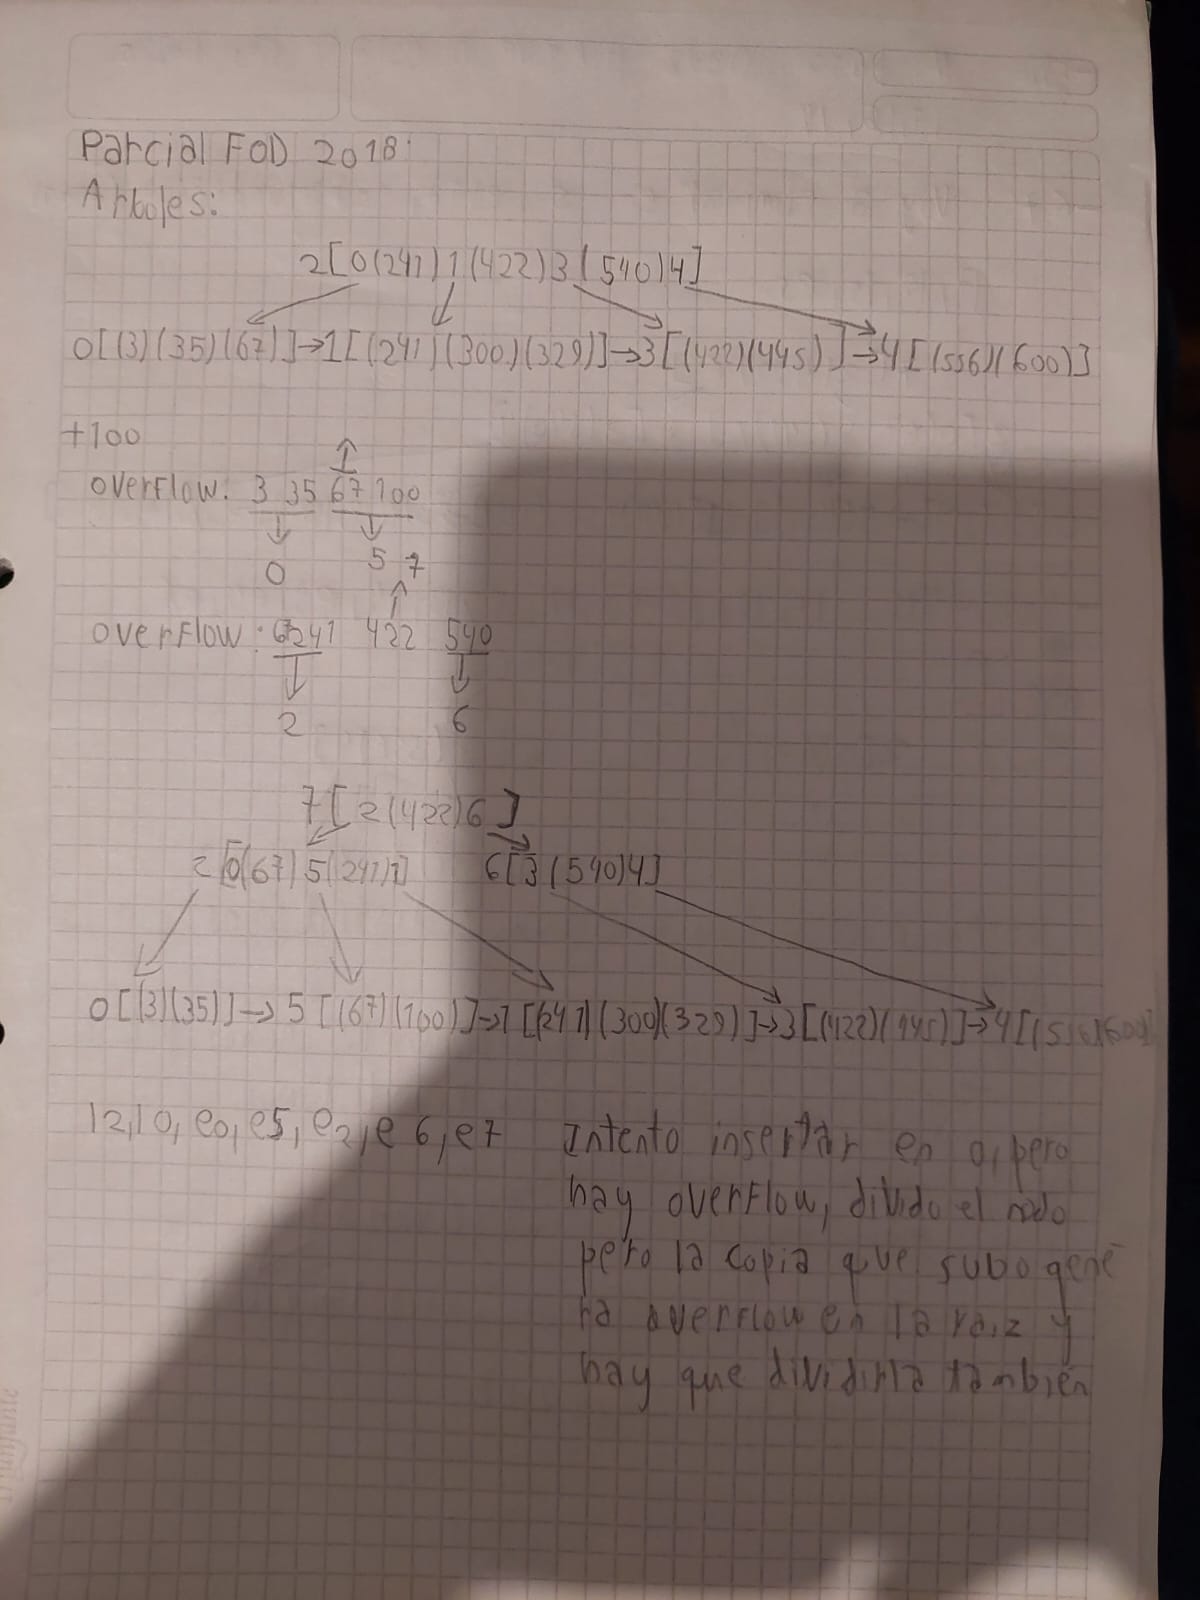 Parcial FOD 2018:
Arboles:
2[0(241)1(422)3(540)4]
0[(3)(35)(67)]→1[(241)(300)(329)]→3[(422)(445)]→4[(556)(600)]
+100
overflow: 3 35 67 100
0 5 7
overflow: 67 241 422 540
2 6
7[2(422)6]
2[0(67)5(241)1] 6[3(540)4]
0[(3)(35)]→5[(67)(100)]→1[(241)(300)(329)]→3[(422)(445)]→4[(556)(600)]
l2, l0, e0, e5, e2, e6, e7 Intento insertar en 0, pero
hay overflow, divido el nodo
pero la copia que subo gene
ra overflow en la raiz y
hay que dividirla tambien